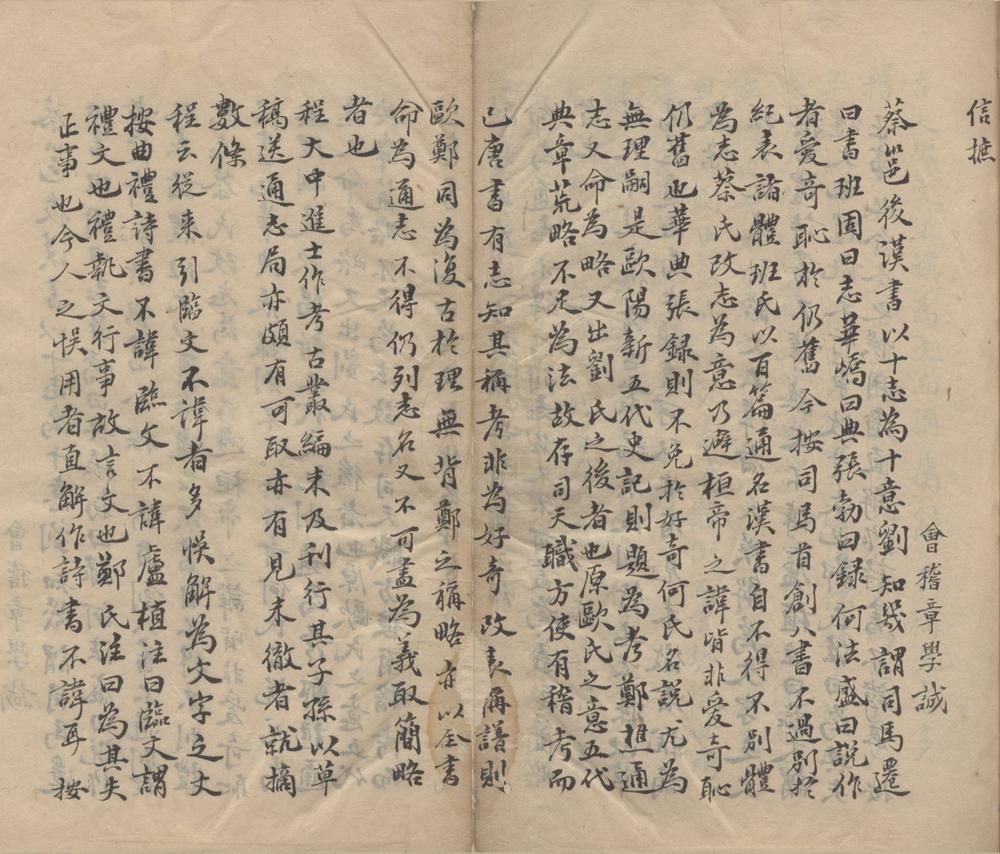 信摭
會稽章學誠
蔡邕後漢書以十志為十意劉知幾謂司馬遷
曰書班固曰志華嶠曰典張勃曰録何法盛曰說作
者愛奇恥於仍舊今按司馬首創八書不過別於
紀表諸體班氏以百篇通名漢書自不得不別體
為志蔡氏改志為意乃避桓帝之諱皆非愛奇恥
仍舊也華典張録則不免於好奇何氏名說尤為
無理嗣是歐陽新五代史記則題為考鄭樵通
志又命為略又出劉氏之後者也原歐氏之意五代
典章荒略不足為法故存司天職方使有稽考而
已唐書有志知其稱考非為好奇改表稱譜則
歐鄭同為復古於理無背鄭之稱略亦以全書
命為通志不得仍列志名又不可盡為義取簡略
者也
程大中進士作考古叢編未及刊行其子孫以草
稿送通志局亦頗有可取亦有見未徹者就摘
數條
程云從来引臨文不諱者多悞解為文字之文
按曲禮詩書不諱臨文不諱盧植注曰臨文謂
禮文也禮執文行事故言文也鄭氏注曰為其失
正事也今人之悞用者直解作詩書不諱耳 按